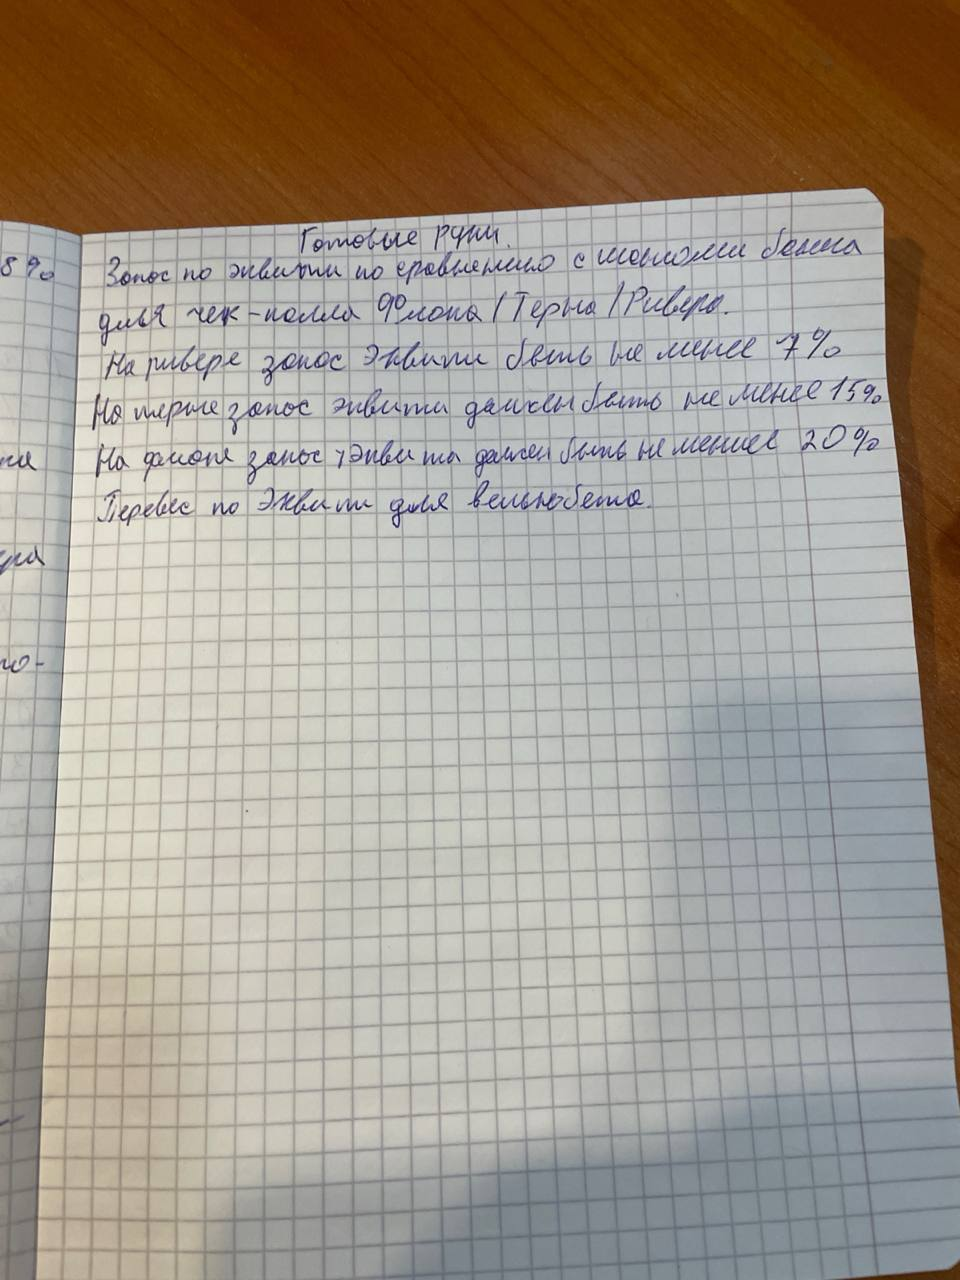 Готовые руки.
8%
Запас по эквити по сравнению с шансами банка
для чек-колла Флопа/Терна/Ривера.
На ривере запас эквити быть не менее 7%
На терне запас эквити должен быть не менее 15%
На флопе запас эквити должен быть не менее 20%
Перевес по Эквити для велью-бета.